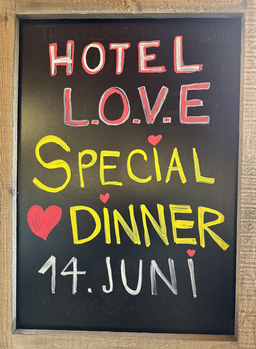 HOTEL
L.O.V.E
SPECIAL
DINNER
14. JUNI